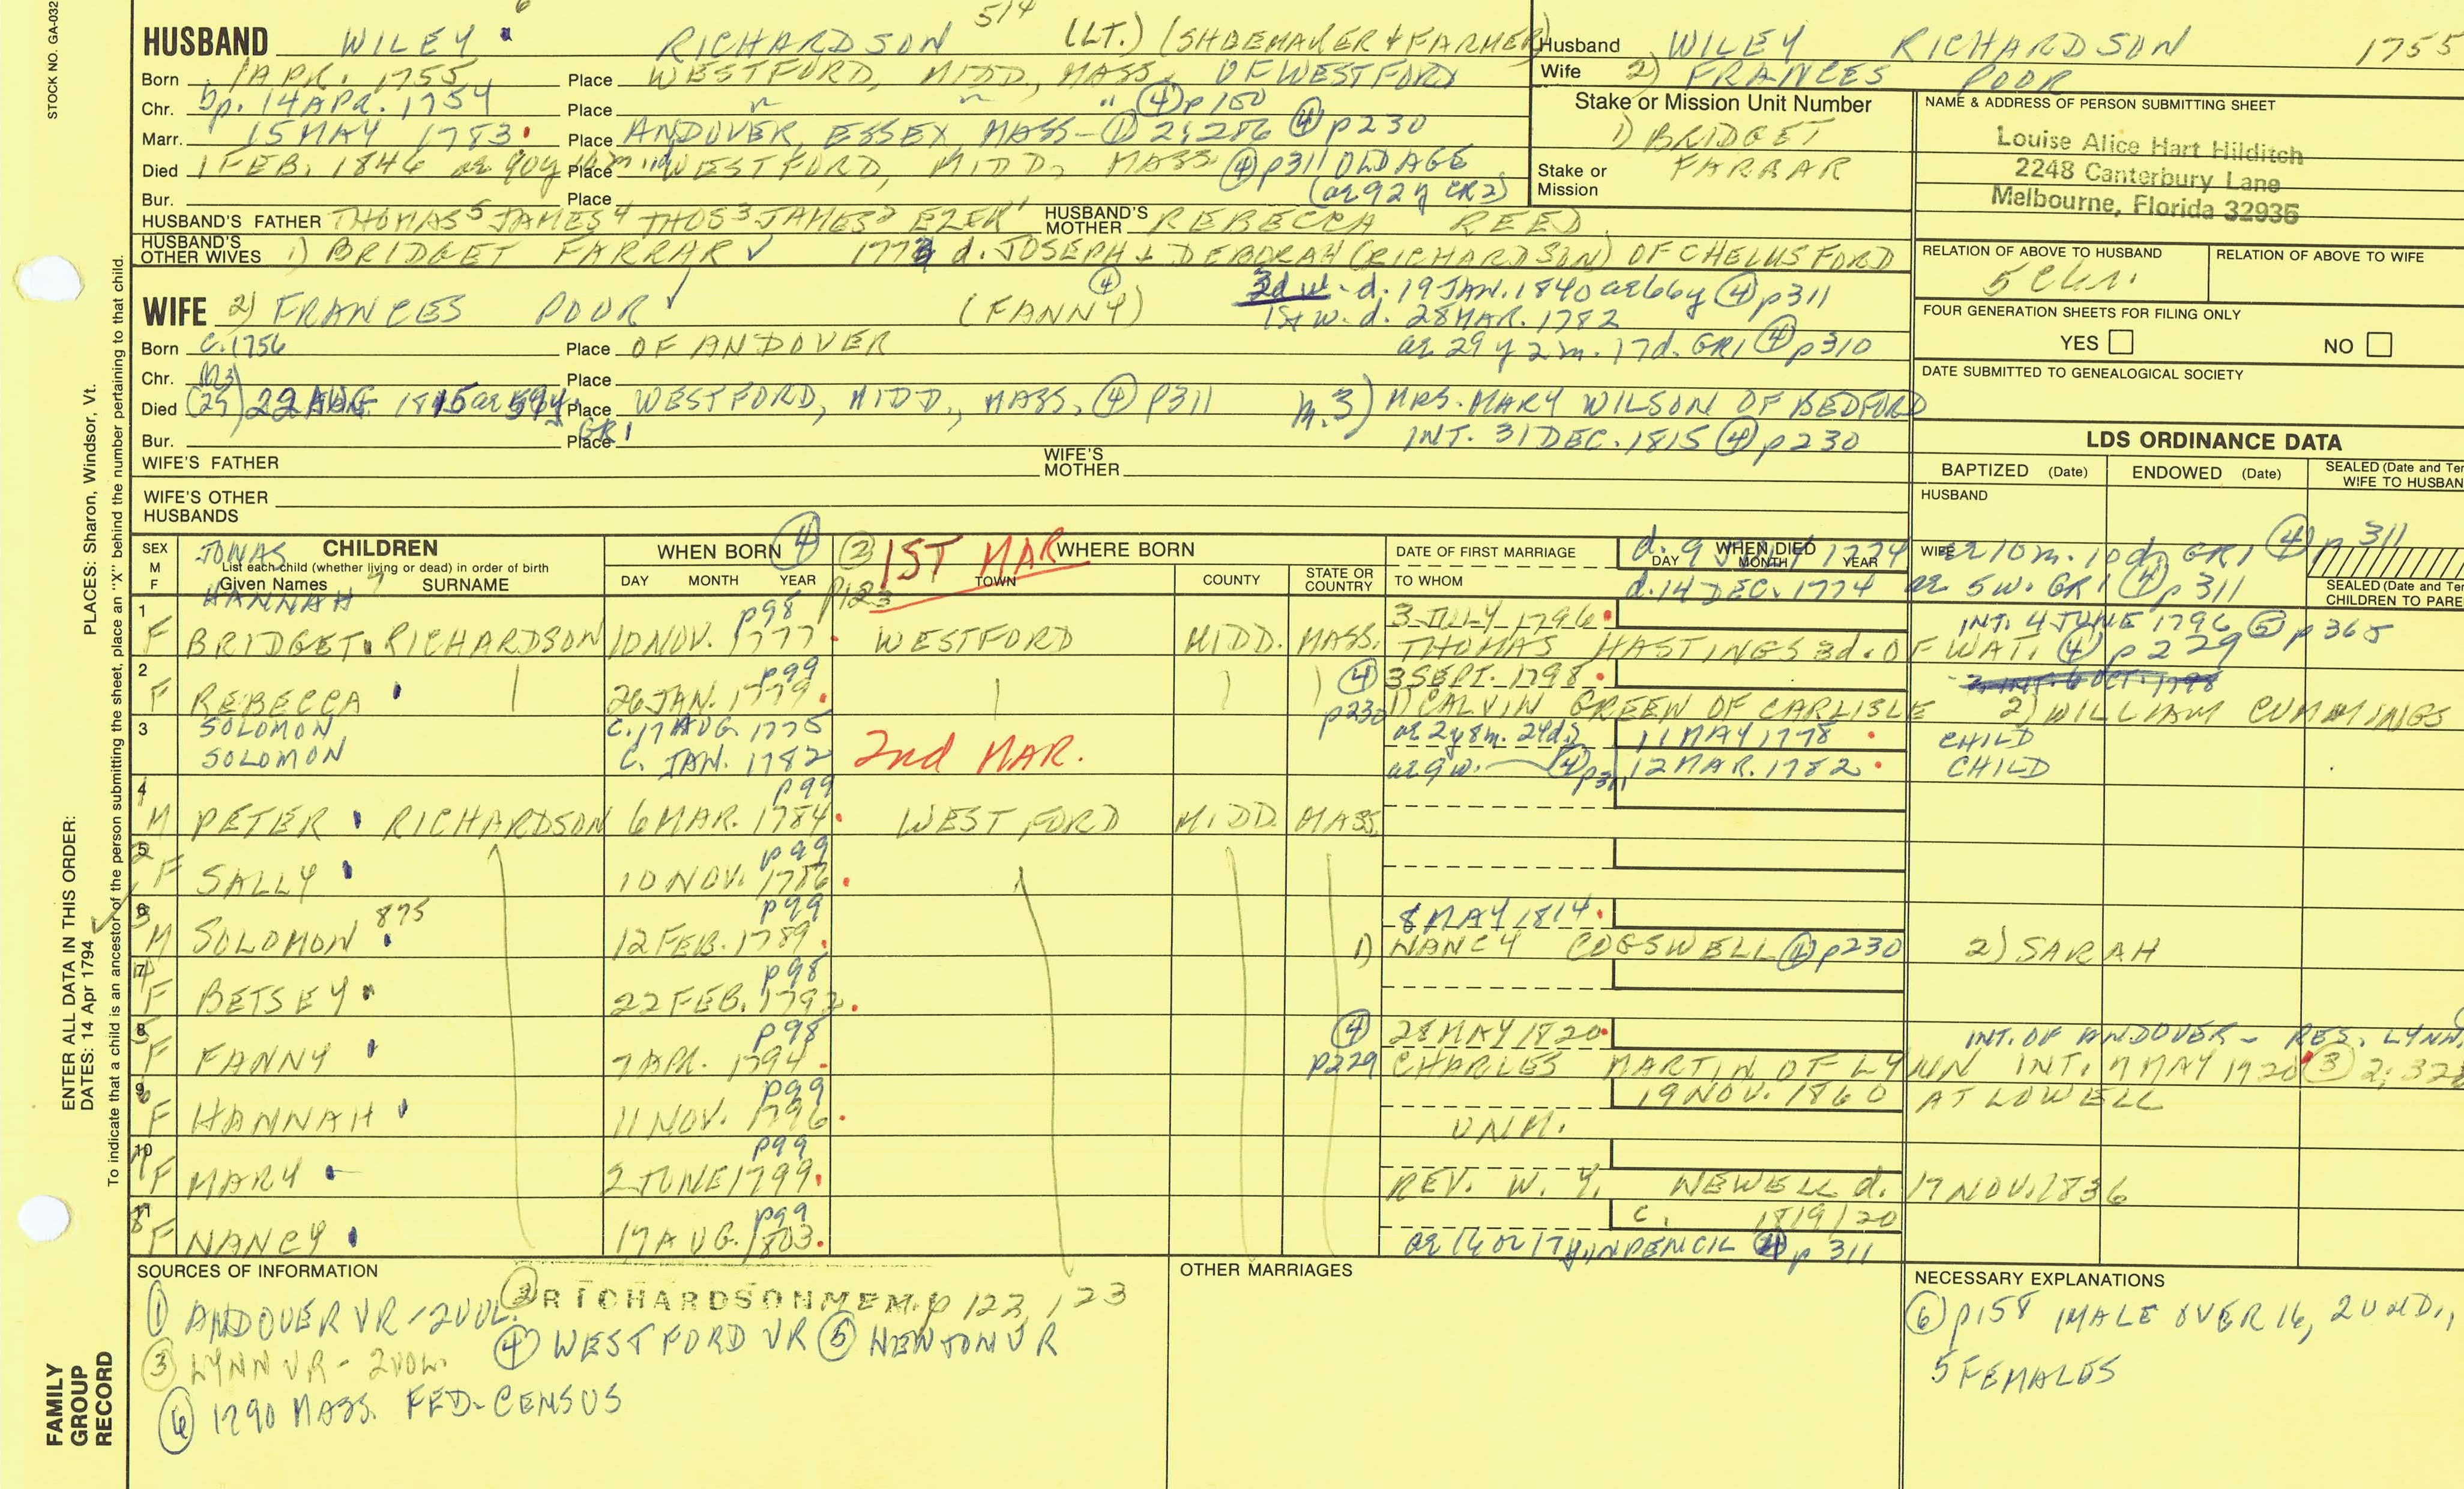 STOCK NO. GA-032
HUSBAND WILEY RICHARDSON 514 (LT.) (SHOEMAKER & FARMER)
Born 1 APR. 1755 Place WESTFORD, MIDD., MASS. OF WESTFORD
Chr. bp. 14 APR. 1754 Place " " " ④ p 100
Marr. 15 MAY 1783. Place ANDOVER, ESSEX, MASS - ① 2:286 ④ p230
Died 1 FEB. 1846 ae 90y 10m Place WESTFORD, MIDD, MASS ④ p311 OLD AGE
Bur. Place (ae 92 y CR2)
HUSBAND'S FATHER THOMAS5 JAMES4 THOS3 JAMES2 EZEK1 HUSBAND'S MOTHER REBECCA REED
HUSBAND'S OTHER WIVES 1) BRIDGET FARRAR ✓ d. JOSEPH & DEBORAH (RICHARDSON) OF CHELMSFORD
Husband WILEY RICHARDSON 1755
Wife 2) FRANCES POOR
Stake or Mission Unit Number
1) BRIDGET
FARRAR
Stake or Mission
NAME & ADDRESS OF PERSON SUBMITTING SHEET
Louise Alice Hart Hilditch
2248 Canterbury Lane
Melbourne, Florida 32935
RELATION OF ABOVE TO HUSBAND
RELATION OF ABOVE TO WIFE
FOUR GENERATION SHEETS FOR FILING ONLY
YES NO
DATE SUBMITTED TO GENEALOGICAL SOCIETY
WIFE 2) FRANCES POOR ✓ (FANNY) ④
3d w. d. 19 JAN. 1840 ae 66y ④ p311
1st w. d. 28 MAR. 1782
ae 29 y 2 m. 17 d. GR1 ④ p310
Born C. 1756 Place OF ANDOVER
Chr. Place
Died 22 AUG. 1815 ae 59y. GR1 Place WESTFORD, MIDD., MASS. ④ p311
m. 3) MRS. MARY WILSON OF BEDFORD
INT. 31 DEC. 1815 ④ p230
Bur. Place
WIFE'S FATHER WIFE'S MOTHER
WIFE'S OTHER HUSBANDS
LDS ORDINANCE DATA
BAPTIZED (Date) ENDOWED (Date) SEALED (Date and Ter
WIFE TO HUSBAN
HUSBAND
WIFE
SEALED (Date and Ter
CHILDREN TO PARE
SEX M F
CHILDREN
List each child (whether living or dead) in order of birth
Given Names SURNAME
WHEN BORN ④
DAY MONTH YEAR
② p123 1ST MAR
WHERE BORN
TOWN COUNTY STATE OR COUNTRY
DATE OF FIRST MARRIAGE
TO WHOM
WHEN DIED
DAY MONTH YEAR
JONAS d. 9 1774 ae 10m. 10d. GR1 ④ p 311
HANNAH d. 14 DEC. 1774 ae 5 w. GR1 ④ p 311
1 F BRIDGET RICHARDSON 10 NOV. 1777. p98 WESTFORD MIDD. MASS. 3 JULY 1796. THOMAS HASTINGS 3d. OF WAT. ④ p 229 INT. 4 JUNE 1796 ⑤ p 365
2 F REBECCA 26 JAN. 1779. p99 ④ p230 3 SEPT. 1798. 1) CALVIN GREEN OF CARLISLE 2) WILLIAM CUMMINGS
3 SOLOMON C. 17 AUG. 1775 ae 2y 8m. 24d. 11 MAY 1778. CHILD
SOLOMON C. JAN. 1782 2nd MAR. ae 9 w. ④ p311 12 MAR. 1782. CHILD
4 M PETER RICHARDSON 6 MAR. 1784. p99 WESTFORD MIDD. MASS
5 F SALLY 10 NOV. 1786. p99
6 M SOLOMON 875 12 FEB. 1789. p99 8 MAY 1814. 1) NANCY COGSWELL ④ p230 2) SARAH
7 F BETSEY 22 FEB. 1792. p98
8 F FANNY 7 APR. 1794. p98 ④ p229 28 MAY 1820. CHARLES MARTIN OF LYNN INT. 7 MAY 1920 ③ 2:328
INT. OF ANDOVER - RES. LYNN
9 F HANNAH 11 NOV. 1796. p99 19 NOV. 1860 AT LOWELL
UNM.
10 F MARY 2 JUNE 1799. p99 REV. W. Y. NEWELL d. 17 NOV. 1836
11 F NANCY 17 AUG. 1803. p99 C. 1819/20
ae 16 or 17 y. IN PENCIL ④ p 311
SOURCES OF INFORMATION
① ANDOVER VR - 2 VOL. ② RICHARDSON MEM. p 122, 123
③ LYNN VR - 2 VOL. ④ WESTFORD VR ⑤ NEWTON VR
⑥ 1790 MASS. FED. CENSUS
OTHER MARRIAGES
NECESSARY EXPLANATIONS
⑥ p158 1 MALE OVER 16, 2 UND.,
5 FEMALES
PLACES: Sharon, Windsor, Vt.
ENTER ALL DATA IN THIS ORDER:
DATES: 14 Apr 1794
To indicate that a child is an ancestor of the person submitting the sheet, place an "X" behind the number pertaining to that child.
FAMILY
GROUP
RECORD